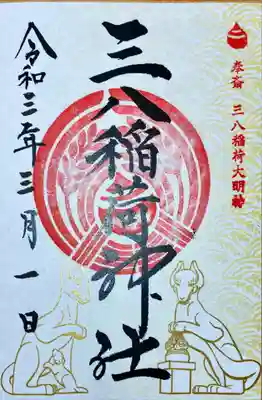 奉斎 三八稲荷大明神
三八稲荷神社
令和三年三月一日